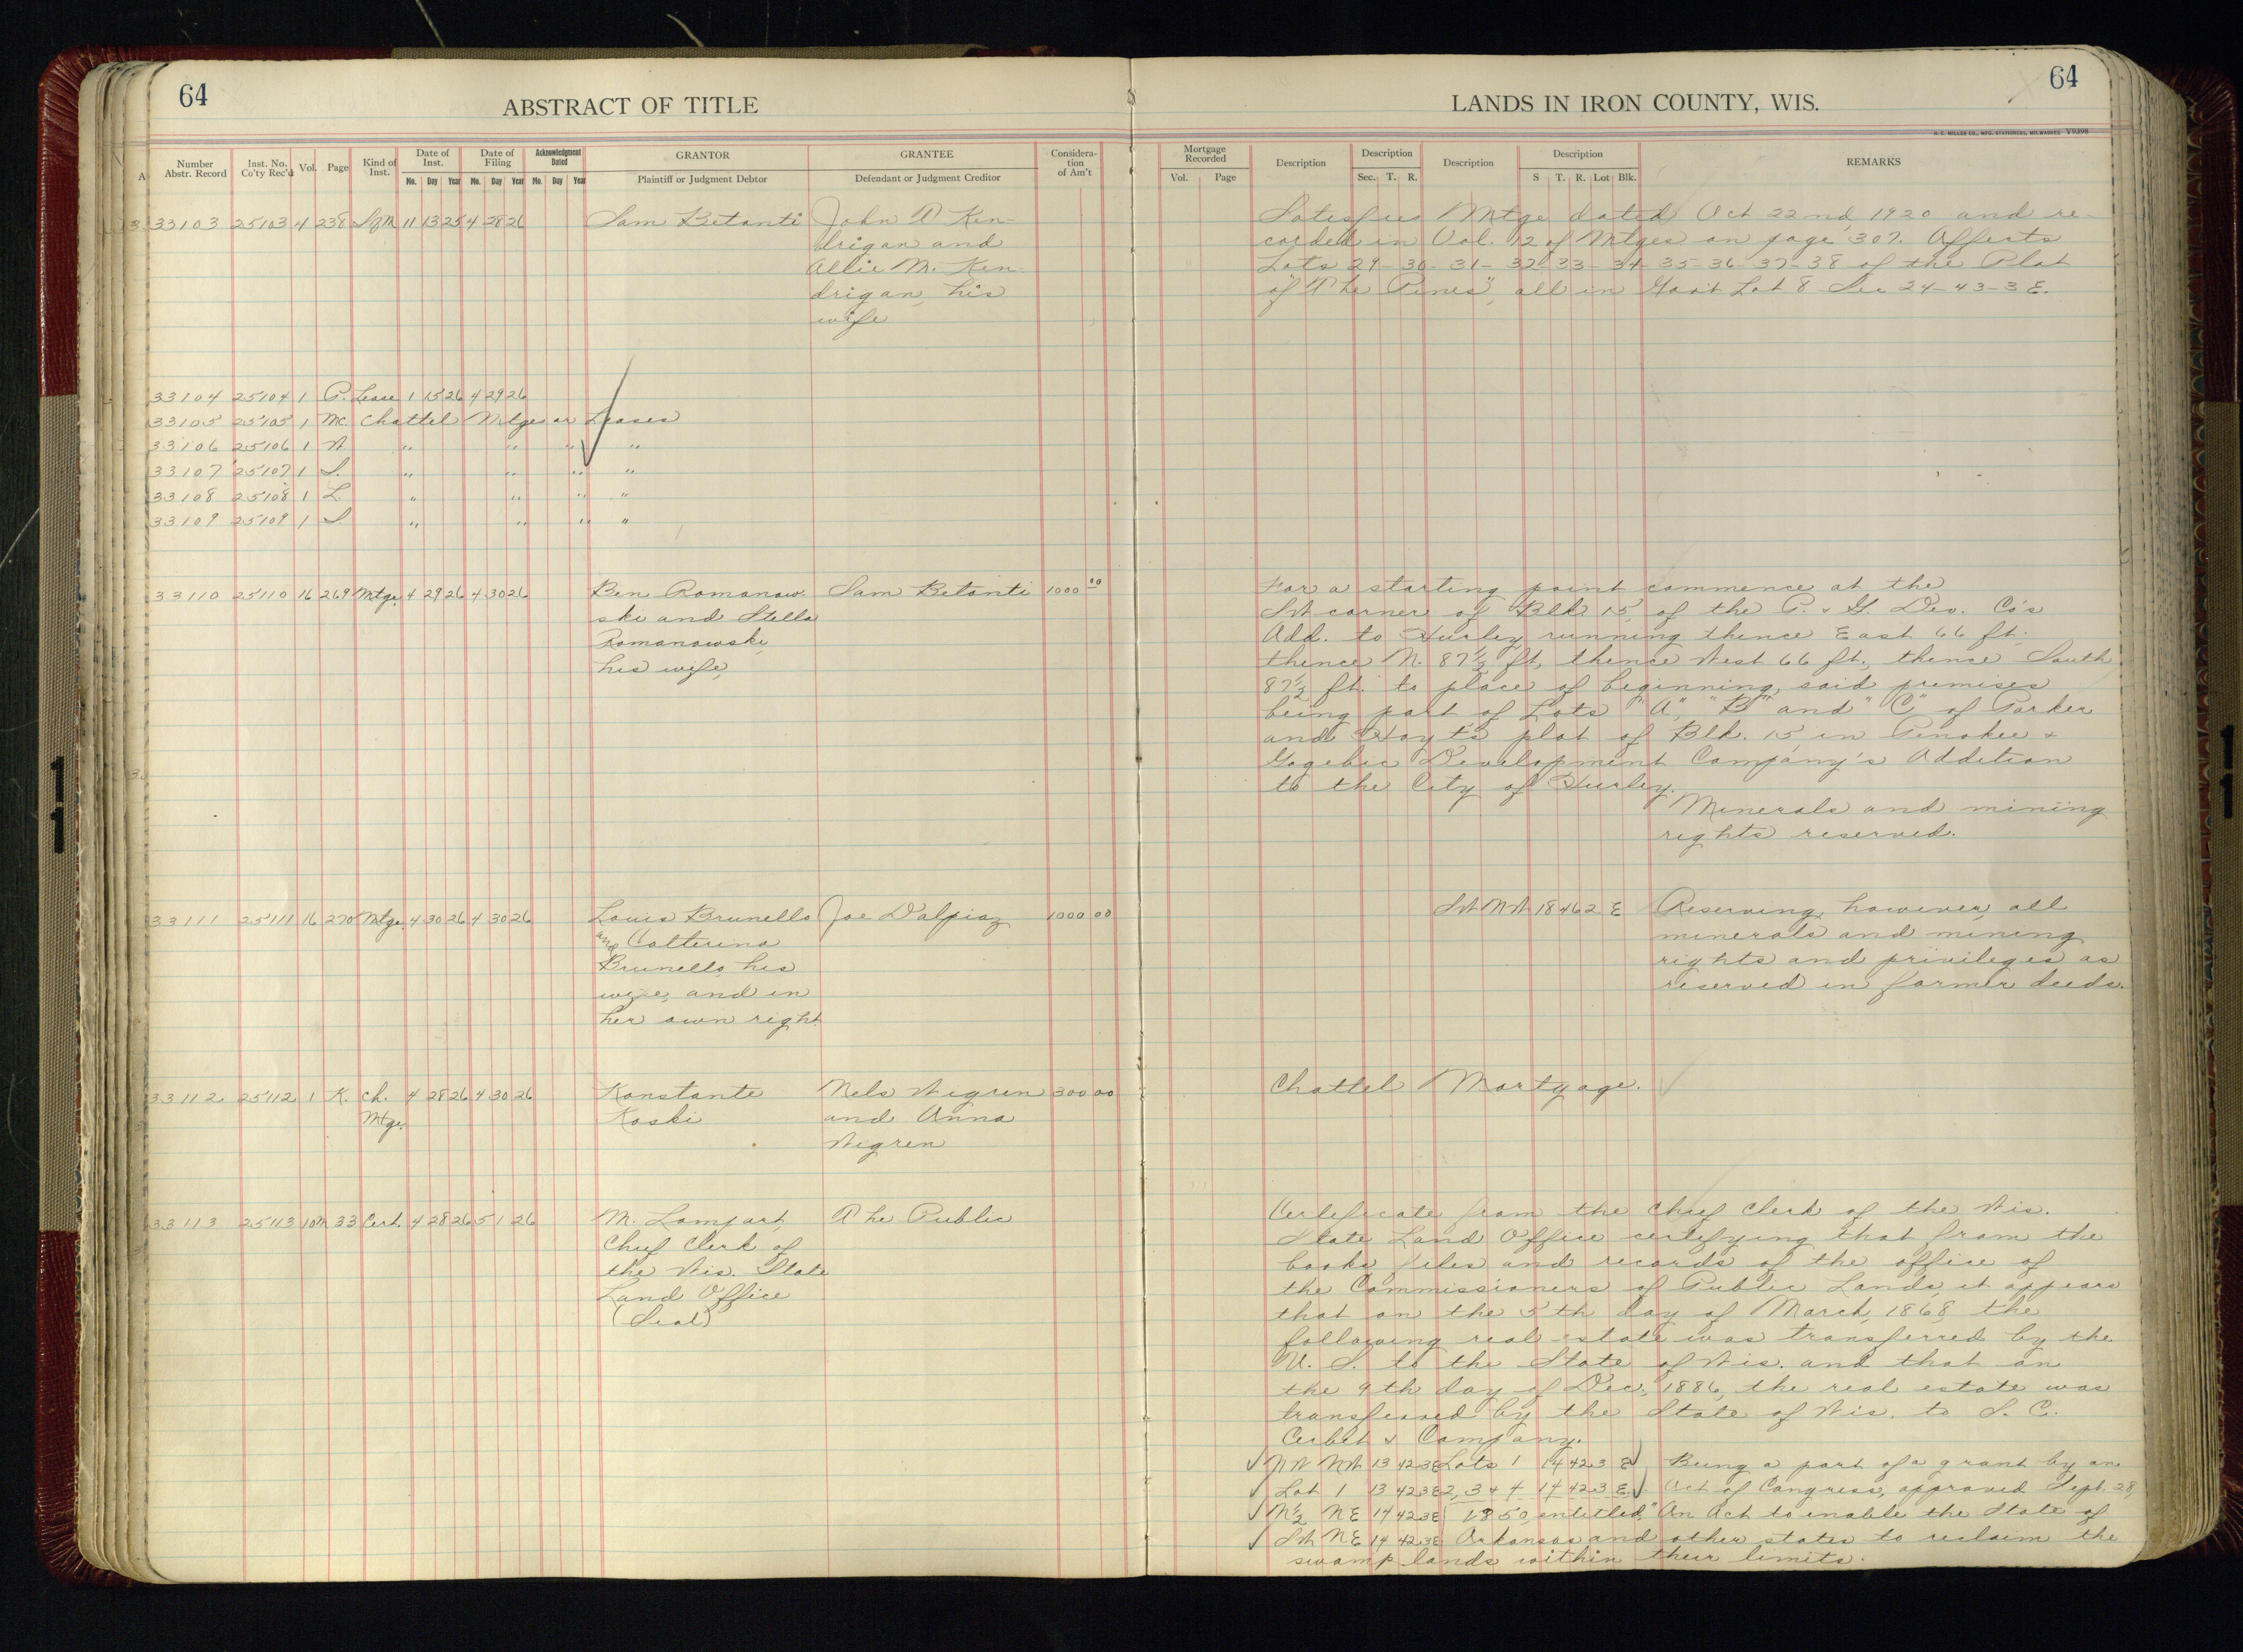 64
ABSTRACT OF TITLE
LANDS IN IRON COUNTY, WIS.
64
H. C. MILLER CO., MFG. STATIONERS, MILWAUKEE Y9398
Number Abstr. Record
Inst. No. Co'ty Rec'd
Vol.
Page
Kind of Inst.
Date of Inst.
Mo. Day Year
Date of Filing
Mo. Day Year
Acknowledgment Dated
Mo. Day Year
GRANTOR
Plaintiff or Judgment Debtor
GRANTEE
Defendant or Judgment Creditor
Consideration of Am't
Mortgage Recorded
Vol. Page
Description
Description
Sec. T. R.
Description
Description
S T. R. Lot Blk.
REMARKS
33103 25103 4 238 SfM 11 13 25 4 28 26 Sam Betanti John T Ken-
drigan and
Allie M. Ken-
drigan, his
wife
Satisfies Mtge dated Oct 22nd, 1920 and re-
corded in Vol. 12 of Mtges on page 307. Affects
Lots 29-30-31-32-33-34-35-36-37-38 of the Plat
of "The Pines", all in Gov't Lot 8 Sec 24-43-3E.
33104 25104 1 P. Lease 1 15 26 4 29 26
33105 25105 1 Mc. Chattel Mtges or Leases
33106 25106 1 W " " " "
33107 25107 1 S. " " " "
33108 25108 1 L " " " "
33109 25109 1 S " " " "
33110 25110 16 269 Mtge. 4 29 26 4 30 26 Ben Romanow- Sam Betanti 1000 00
ski and Stella
Romanowski,
his wife,
For a starting point commence at the
SW corner of Blk 15, of the P. & G. Dev. Co's
Add. to Hurley, running thence East 66 ft.,
thence N. 87½ ft, thence West 66 ft., thence South
87½ ft. to place of beginning, said premises
being part of Lots "A", "B" and "C" of Parker
and Hoyt's plat of Blk. 15, in Penokee &
Gogebic Development Company's Addition
to the City of Hurley.
Minerals and mining
rights reserved.
33111 25111 16 270 Mtge. 4 30 26 4 30 26 Louis Brunello Joe Dalpiaz 1000 00
and Catterina
Brunello, his
wife, and in
her own right
SW NW 18 46 2 E Reserving, however, all
minerals and mining
rights and privileges as
reserved in former deeds.
33112 25112 1 K. Ch. 4 28 26 4 30 26 Konstante Nels Wegren 300 00
Mtge. Koski and Anna
Wegren
Chattel Mortgage.
33113 25113 10M 33 Cert. 4 28 26 5 1 26 M. Lampart, The Public
Chief Clerk of
the Wis. State
Land Office
(Seal)
Certificate from the Chief Clerk of the Wis.
State Land Office certifying that from the
books files and records of the office of
the Commissioners of Public Lands, it appears
that on the 5th day of March, 1868, the
following real estate was transferred by the
U. S. to the State of Wis. and that on
the 9th day of Dec., 1886, the real estate was
transferred by the State of Wis. to S. C.
& Company.
NW NW 13 42 3E Lots 1 14 42 3 E Being a part of a grant by an
Lot 1 13 42 3E 2, 3 & 4 14 42 3 E. Act of Congress, approved Sept. 28,
N½ NE 14 42 3E 1850, entitled, "An Act to enable the State of
SW NE 14 42 3E Arkansas and other states to reclaim the
swamp lands within their limits.